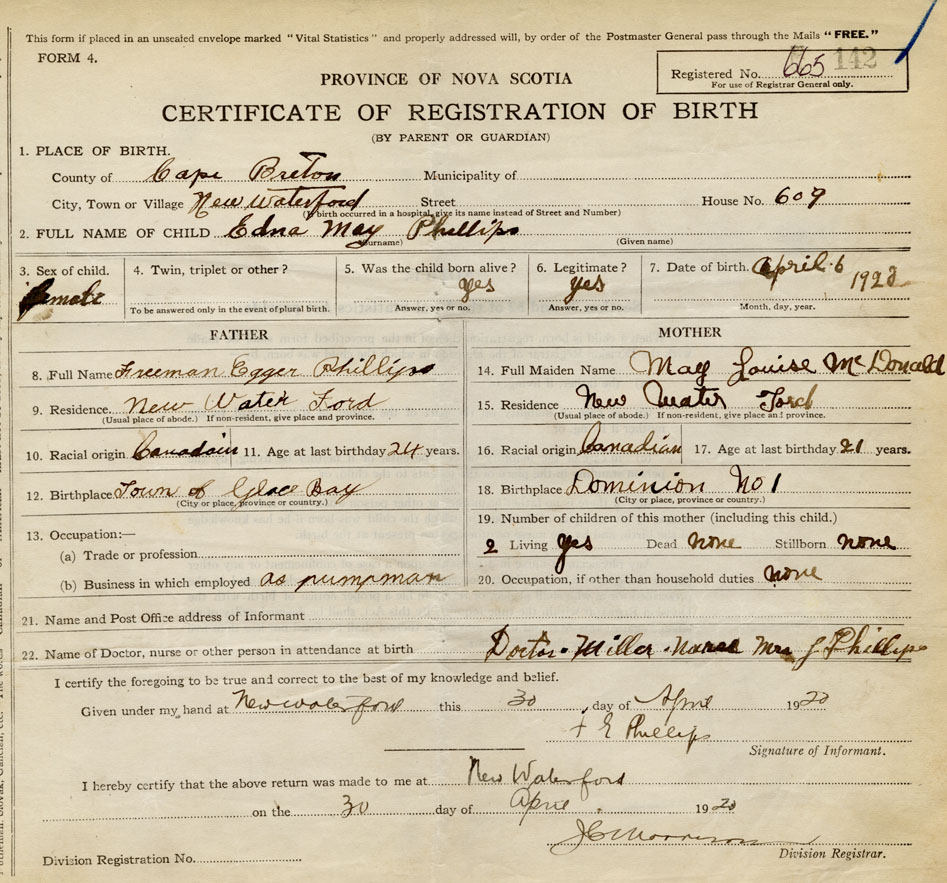 This form if placed in an unsealed envelope marked "Vital Statistics" and properly addressed will, by order of the Postmaster General pass through the Mails "FREE."
FORM 4.
142
Registered No. 665
For use of Registrar General only.
PROVINCE OF NOVA SCOTIA
CERTIFICATE OF REGISTRATION OF BIRTH
(BY PARENT OR GUARDIAN)
1. PLACE OF BIRTH.
County of Cape Breton Municipality of
City, Town or Village New Waterford Street House No. 609
(If birth occurred in a hospital, give its name instead of Street and Number)
2. FULL NAME OF CHILD Edna May Phillips
(Surname) (Given name)
3. Sex of child. 4. Twin, triplet or other? 5. Was the child born alive? 6. Legitimate? 7. Date of birth. April 6
female yes yes
To be answered only in the event of plural birth. Answer, yes or no. Answer, yes or no. Month, day, year.
FATHER MOTHER
8. Full Name Freeman Egger Phillips
14. Full Maiden Name May Louise McDonald
9. Residence. New Water Ford
(Usual place of abode.) If non-resident, give place and province.
15. Residence New Water Ford
(Usual place of abode.) If non-resident, give place and province.
10. Racial origin Canadain 11. Age at last birthday 24 years.
16. Racial origin Canadian 17. Age at last birthday. 21 years.
12. Birthplace Town of Glace Bay
(City or place, province or country.)
18. Birthplace Dominion No 1
(City or place, province or country.)
13. Occupation:—
(a) Trade or profession
(b) Business in which employed as pumpman
19. Number of children of this mother (including this child.)
2 Living yes Dead none Stillborn none
20. Occupation, if other than household duties none
21. Name and Post Office address of Informant
22. Name of Doctor, nurse or other person in attendance at birth Doctor Miller Nurse Mrs J Phillips
I certify the foregoing to be true and correct to the best of my knowledge and belief.
Given under my hand at New waterford this 30 day of April 19
F E Phillips
Signature of Informant.
I hereby certify that the above return was made to me at New Waterford
on the 30 day of April 19
Division Registration No. Division Registrar.